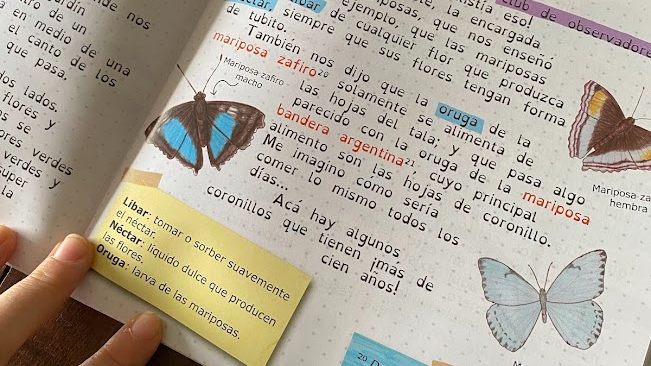 nos
tro de un
a en medio de una
el canto de los
que pasa.
dos lados,
flores y
os se
ores verdes
verdes y
la
club de observadores
eso!
la encargada
ejemplo, que las mariposas
néctar, siempre que sus flores tengan forma
de tubito.
También nos dijo que la oruga de la
mariposa zafiro²⁰ solamente se alimenta de
las hojas del tala; y que pasa algo
parecido con la oruga de la mariposa
bandera argentina²¹, cuyo principal
alimento son las hojas de coronillo.
Me imagino como sería
comer lo mismo todos los
días... Acá hay algunos
coronillos que tienen ¡más de
cien años!
de cualquier flor que produzca
que nos enseñó
Mariposa zafiro
macho
Mariposa
hembra
Libar: tomar o sorber suavemente
el néctar.
Néctar: líquido dulce que producen
las flores.
Oruga: larva de las mariposas.
20